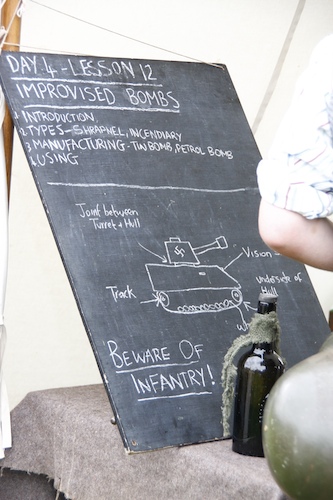 DAY 4 - LESSON 12
IMPROVISED BOMBS
1 INTRODUCTION
2 TYPES - SHRAPNEL, INCENDIARY
3 MANUFACTURING - TIN BOMB, PETROL BOMB
4 USING
Joint between
Turret & Hull
Vision -
underside of
Hull
Track
BEWARE OF
INFANTRY!